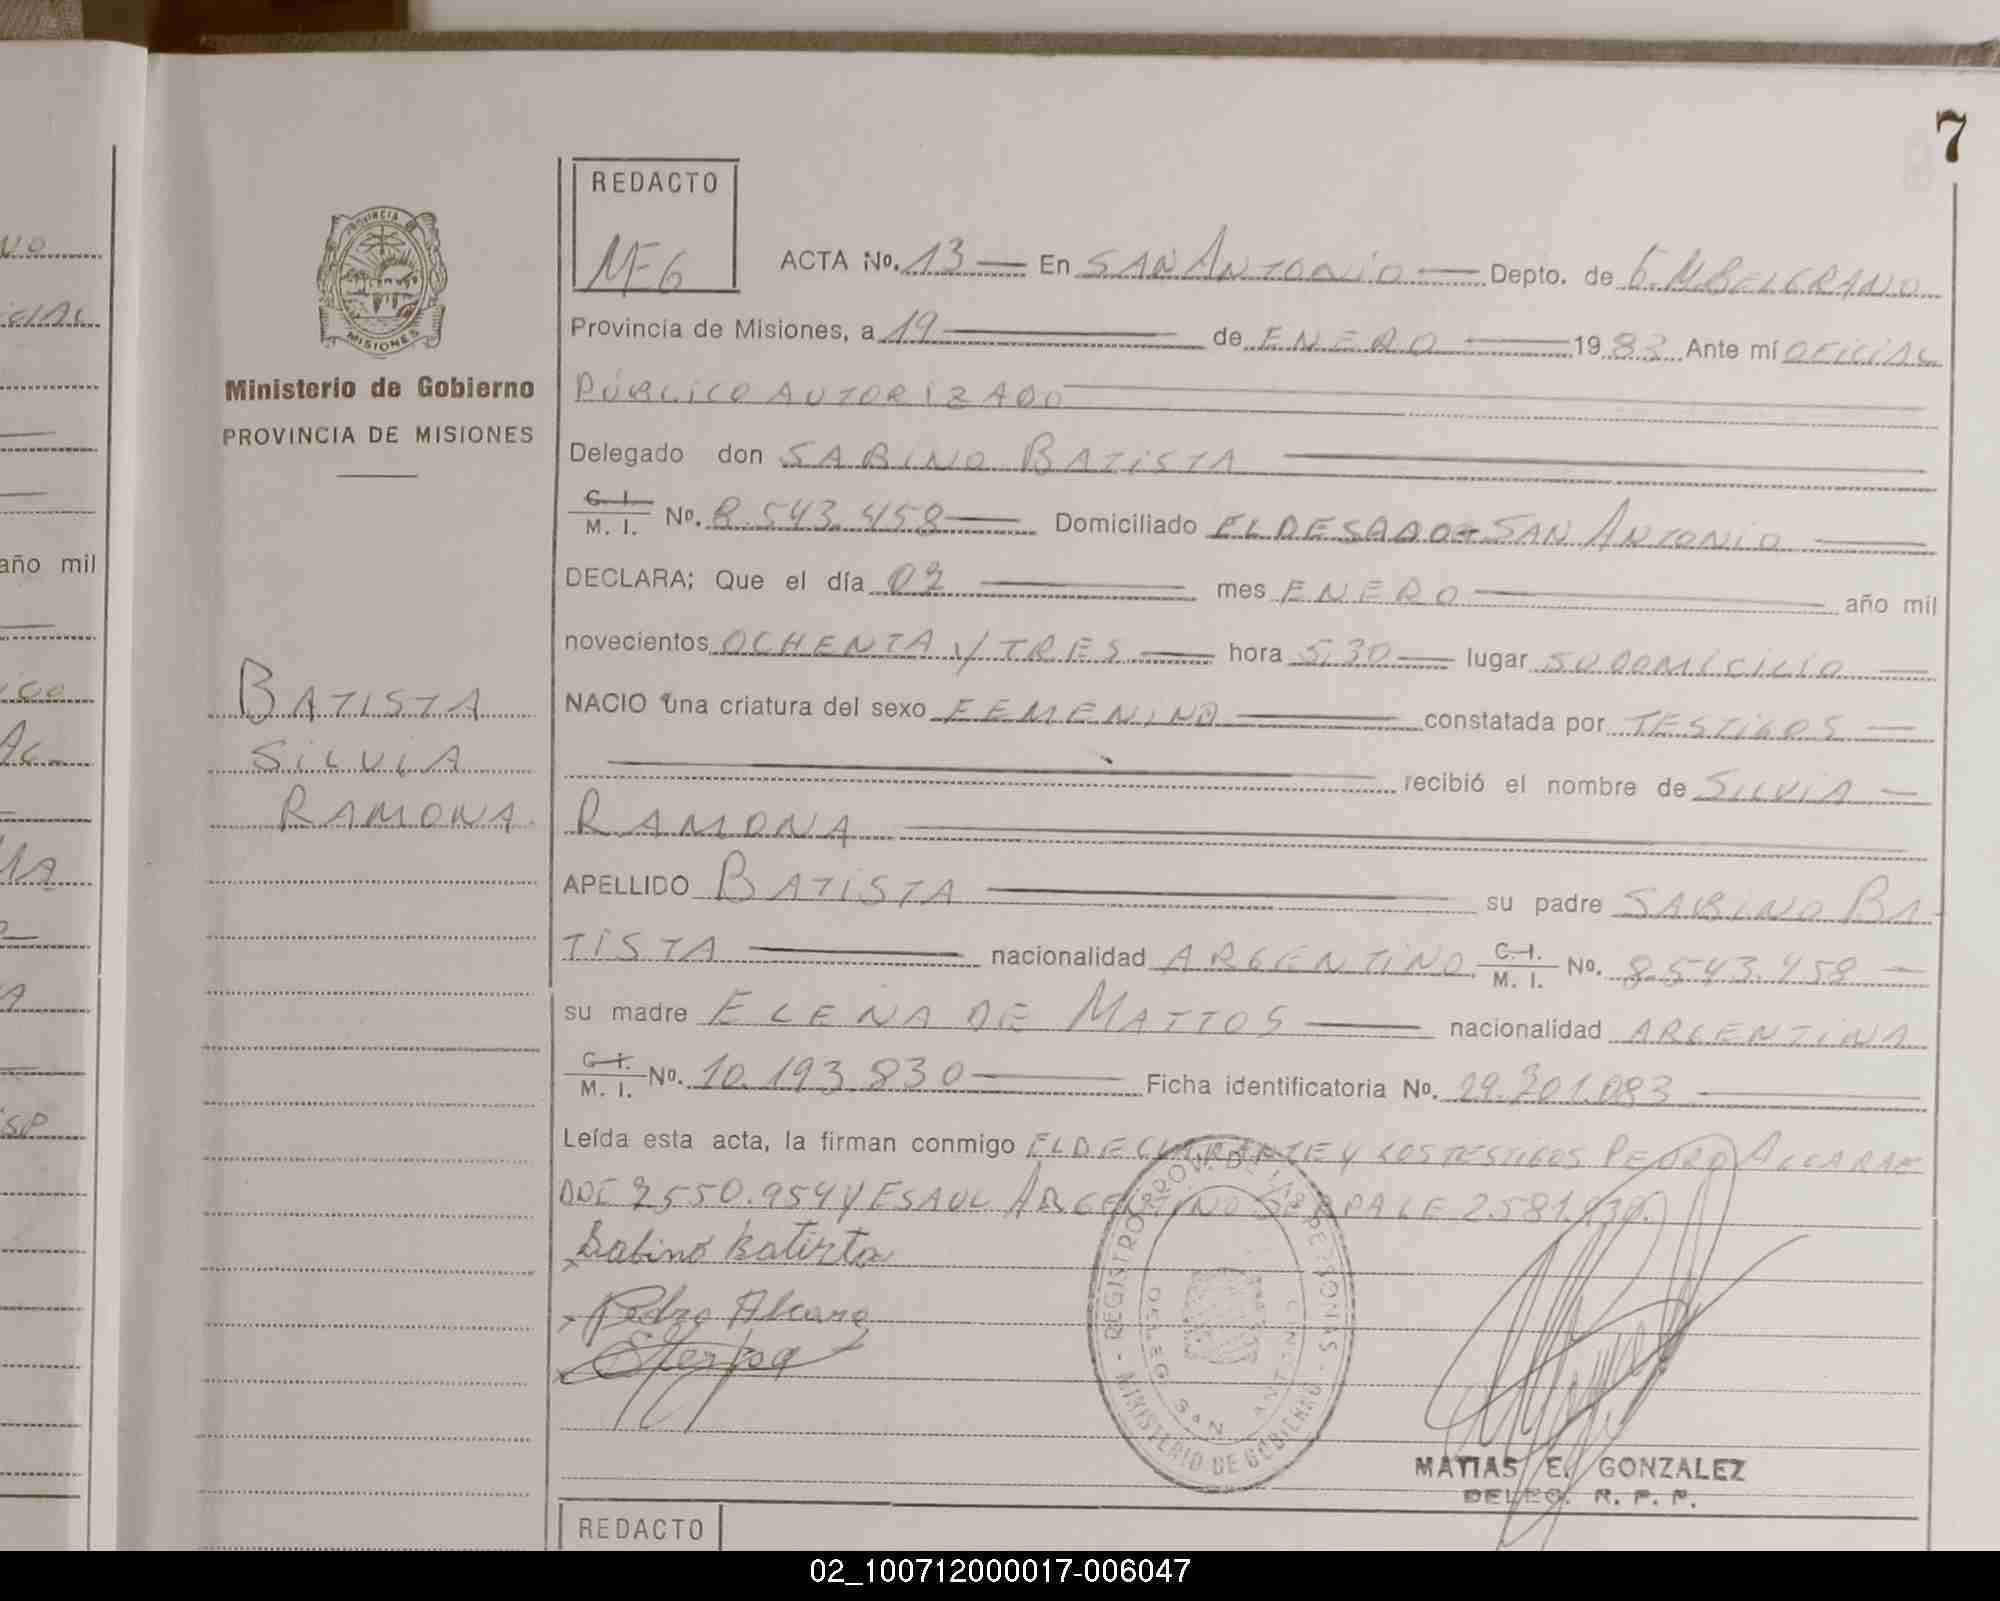 7
REDACTO
MEG
PROVINCIA DE
MISIONES
Ministerio de Gobierno
PROVINCIA DE MISIONES
BATISTA
SILVIA
RAMONA
ACTA No. 13 En SAN ANTONIO Depto. de G.M.BELGRANO
Provincia de Misiones, a 19 de ENERO 1983 Ante mí OFICIAL
PÚBLICO AUTORIZADO
Delegado don SABINO BATISTA
C. I.
M. I. No. 8.543.458 Domiciliado EL DESEADO-SAN ANTONIO
DECLARA; Que el día 02 mes ENERO año mil
novecientos OCHENTA Y TRES hora 5,30 lugar SU DOMICILIO
NACIO una criatura del sexo FEMENINO constatada por TESTIGOS
recibió el nombre de SILVIA
RAMONA
APELLIDO BATISTA su padre SABINO BA-
TISTA nacionalidad ARGENTINO C. I. M. I. No. 8.543.458
su madre ELENA DE MATTOS nacionalidad ARGENTINA
C. I.
M. I. No. 10.193.830 Ficha identificatoria No. 29.201.083
Leída esta acta, la firman conmigo EL DECLARANTE Y LOS TESTIGOS PEDRO ALCARAE
2550.954 Y ESAUL ARGENTINO SERPA LE 2.581.
Sabino Batista
Pedro Alcarae
ESerpa
REGISTRO PROV. DE LAS PERSONAS - MINISTERIO DE GOBIERNO -
DELEG. SAN ANTONIO
MATIAS E. GONZALEZ
DELEG. R. P. P.
REDACTO
año mil
02_100712000017-006047